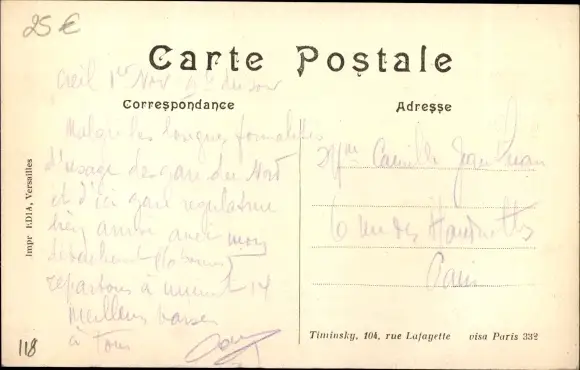 25 €
Carte Postale
Creil 1er Nov 9h du soir
Correspondance
Adresse
Malgré les longues formalités
d'usage des gare du Nord
et d'ici gare régulatrice
bien arrivé avec mon
détachement
repartons à minuit 14
Meilleurs baisers
à Tous
Mme Camille
6 rue des Haudriettes
Paris
Impr EDIA, Versailles
Timinsky, 104, rue Lafayette visa Paris 332
118